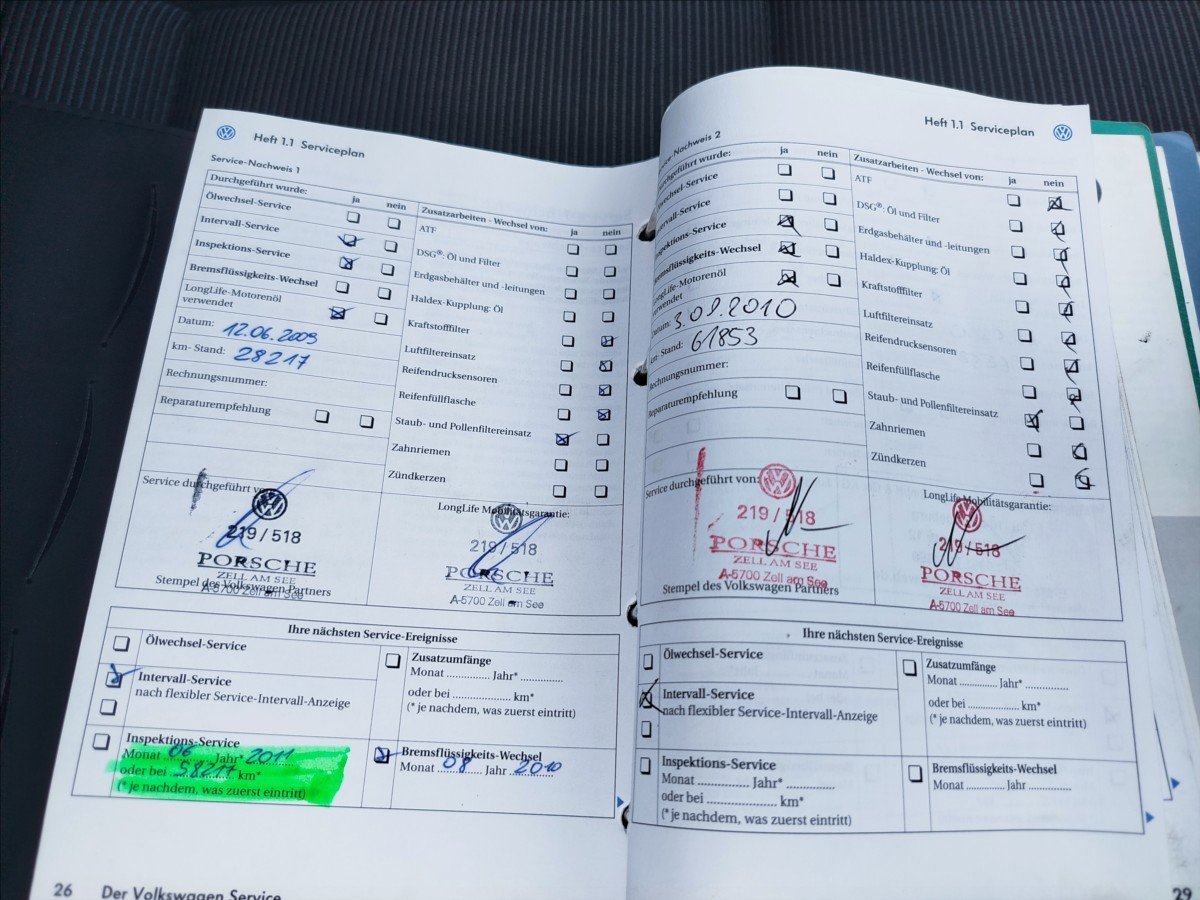 Heft 1.1 Serviceplan
Service-Nachweis 1
Durchgeführt wurde: ja nein
Ölwechsel-Service
Intervall-Service
Inspektions-Service
Bremsflüssigkeits-Wechsel
LongLife-Motorenöl
verwendet
Datum: 12.06.2009
km- Stand: 28217
Rechnungsnummer:
Reparaturempfehlung
Zusatzarbeiten - Wechsel von: ja nein
ATF
DSG®: Öl und Filter
Erdgasbehälter und -leitungen
Haldex-Kupplung: Öl
Kraftstofffilter
Luftfiltereinsatz
Reifendrucksensoren
Reifenfüllflasche
Staub- und Pollenfiltereinsatz
Zahnriemen
Zündkerzen
Service durchgeführt
219 / 518
PORSCHE
ZELL AM SEE
A-5700 Zell am See
Stempel des Volkswagen Partners
LongLife Mobilitätsgarantie:
219 / 518
PORSCHE
ZELL AM SEE
A-5700 Zell am See
Ihre nächsten Service-Ereignisse
Ölwechsel-Service
Intervall-Service
nach flexibler Service-Intervall-Anzeige
Inspektions-Service
Monat 06 Jahr* 2011
oder bei 58217 km*
(* je nachdem, was zuerst eintritt)
Zusatzumfänge
Monat .............. Jahr* ..............
oder bei .................... km*
(* je nachdem, was zuerst eintritt)
Bremsflüssigkeits-Wechsel
Monat 08 Jahr 2010
26 Der Volkswagen Service
Heft 1.1 Serviceplan
Service-Nachweis 2
Durchgeführt wurde: ja nein
Ölwechsel-Service
Intervall-Service
Inspektions-Service
Bremsflüssigkeits-Wechsel
LongLife-Motorenöl
verwendet
Datum:
km- Stand: 61853
Rechnungsnummer:
Reparaturempfehlung
Zusatzarbeiten - Wechsel von: ja nein
ATF
DSG®: Öl und Filter
Erdgasbehälter und -leitungen
Haldex-Kupplung: Öl
Kraftstofffilter
Luftfiltereinsatz
Reifendrucksensoren
Reifenfüllflasche
Staub- und Pollenfiltereinsatz
Zahnriemen
Zündkerzen
Service durchgeführt von:
219 / 518
PORSCHE
ZELL AM SEE
A-5700 Zell am See
Stempel des Volkswagen Partners
LongLife Mobilitätsgarantie:
219 / 518
PORSCHE
ZELL AM SEE
A-5700 Zell am See
Ihre nächsten Service-Ereignisse
Ölwechsel-Service
Intervall-Service
nach flexibler Service-Intervall-Anzeige
Inspektions-Service
Monat .............. Jahr* ..............
oder bei .................... km*
(* je nachdem, was zuerst eintritt)
Zusatzumfänge
Monat .............. Jahr* ..............
oder bei .................... km*
(* je nachdem, was zuerst eintritt)
Bremsflüssigkeits-Wechsel
Monat .............. Jahr ..............
29